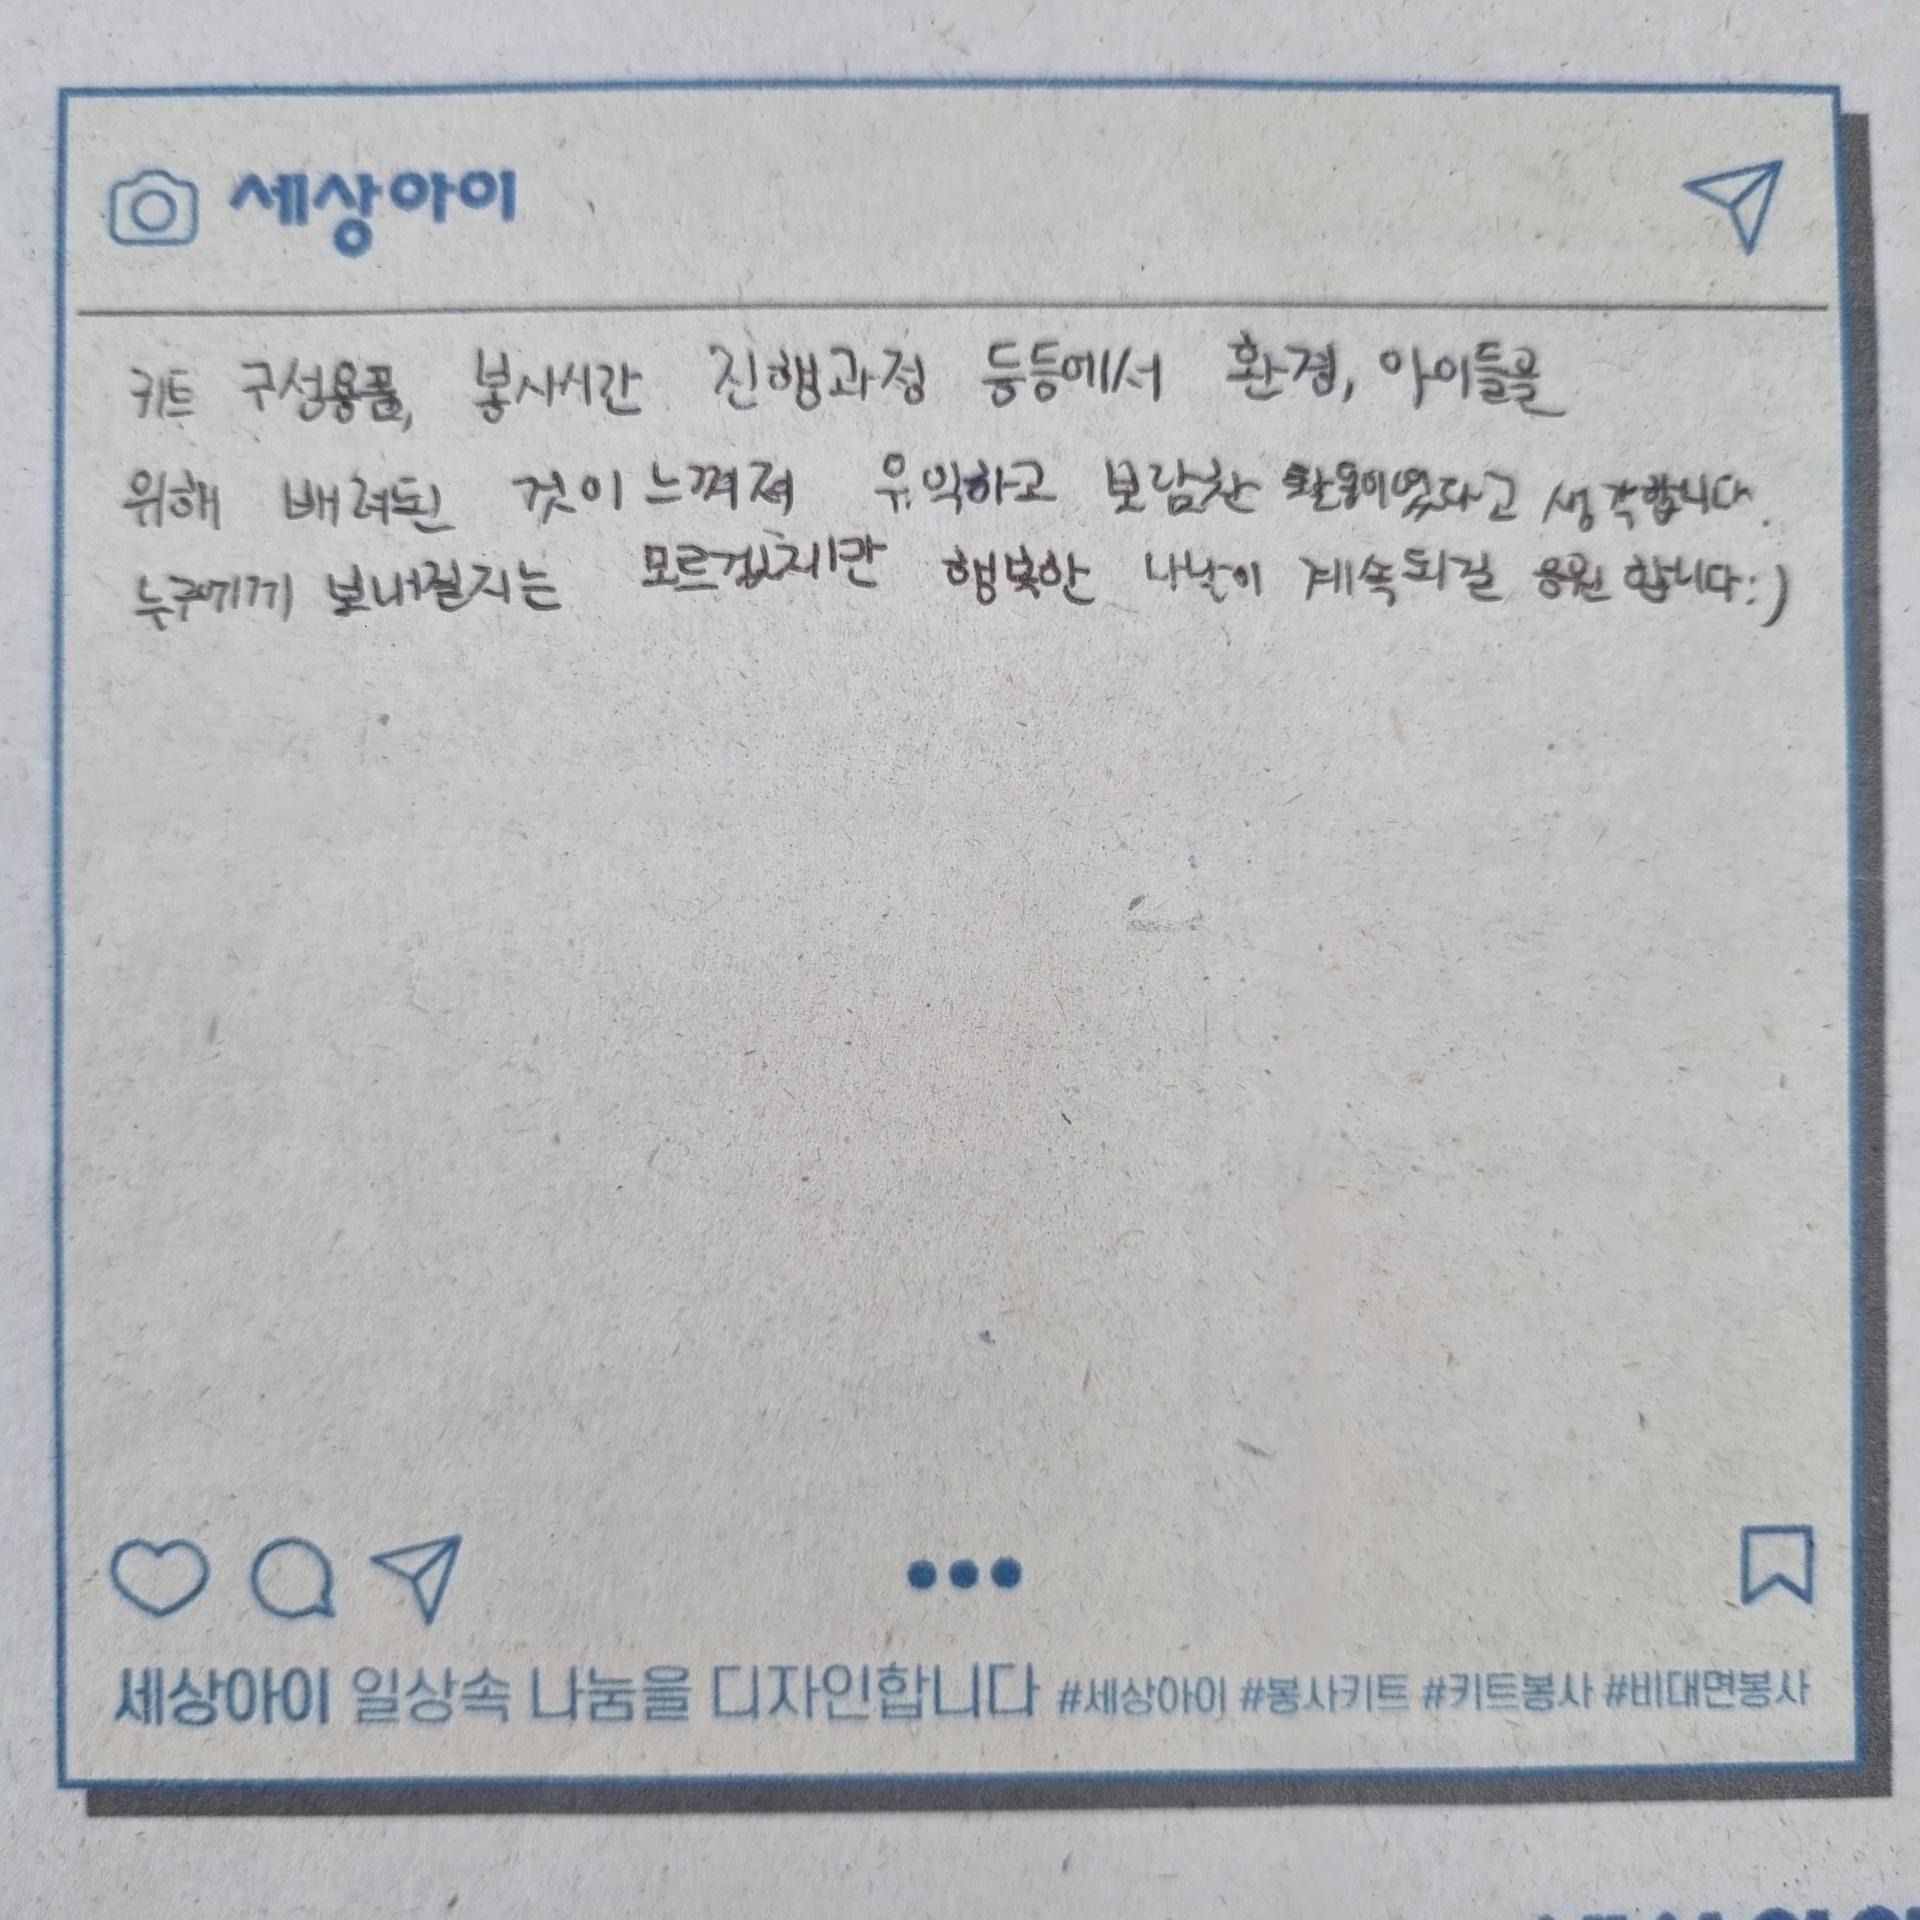 세상아이
키트 구성용품, 봉사시간 진행과정 등등에서 환경, 아이들을
위해 배려된 것이 느껴져 유익하고 보람찬 활동이였다고 생각합니다.
누구에게 보내질지는 모르겠지만 행복한 나날이 계속되길 응원 합니다:)
세상아이 일상속 나눔을 디자인합니다 #세상아이 #봉사키트 #키트봉사 #비대면봉사